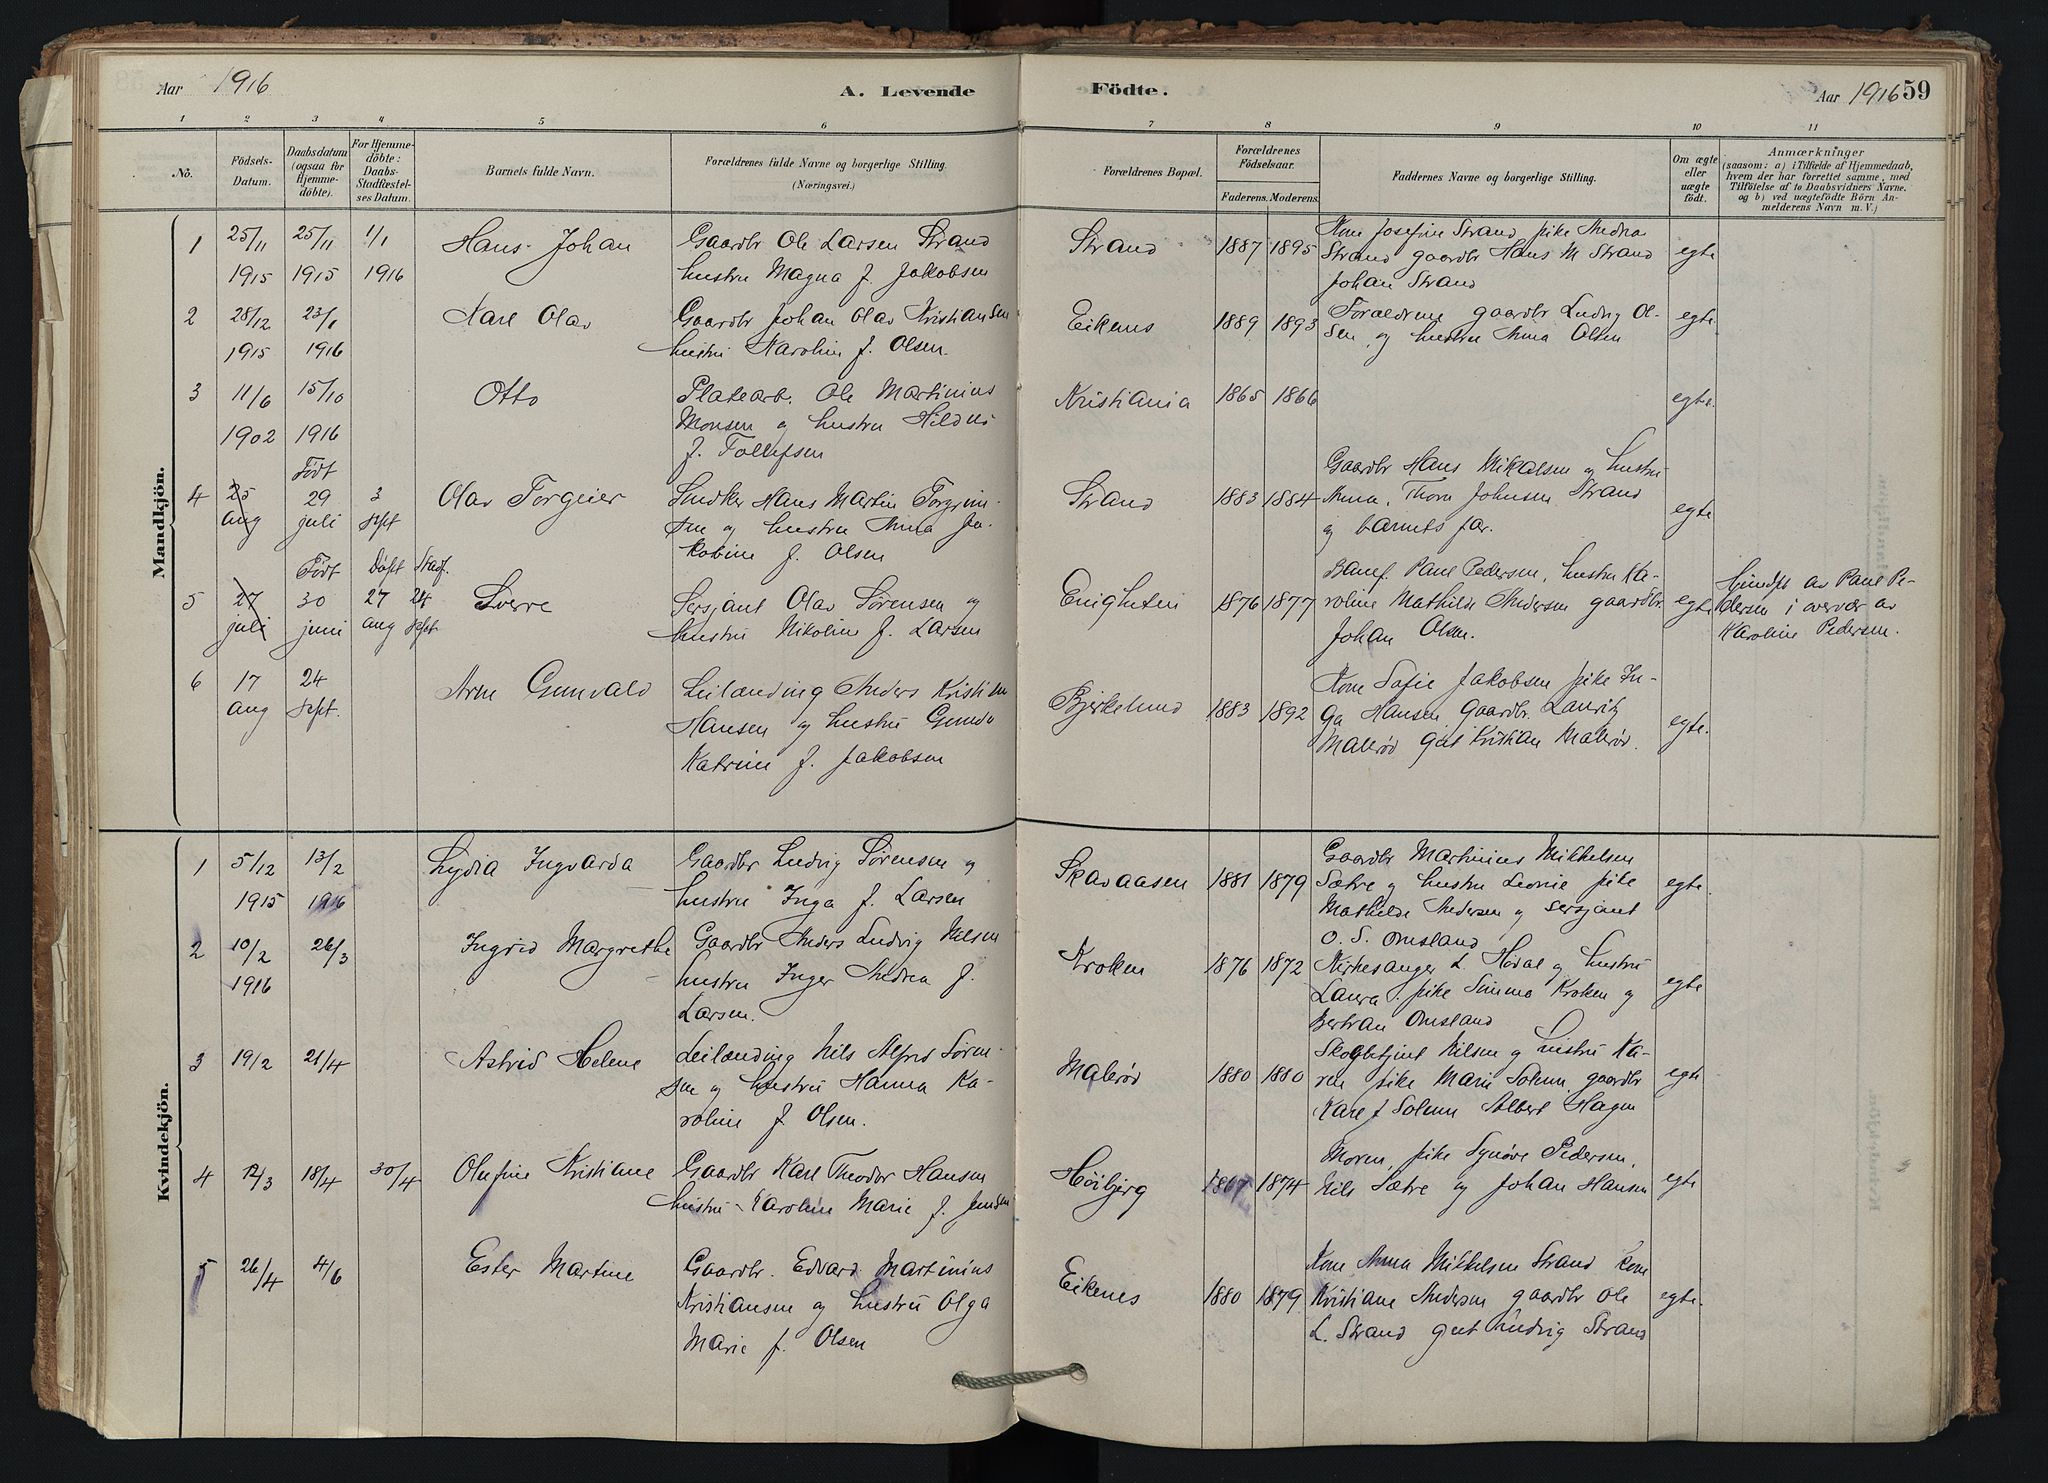 Aar 1916
A. Levende
Födte.
Aar 1916 59
1 2 3 4 5 6 7 8 9 10 11
No.
Födsels-
Datum.
Daabsdatum
(ogsaa for
Hjemme-
döbte).
For Hjemme-
döbte:
Daabs-
Stadfæstel-
ses Datum.
Barnets fulde Navn.
Forældrenes fulde Navne og borgerlige Stilling.
(Næringsvei.)
Forældrenes Bopæl.
Forældrenes
Födselsaar.
Faderens. Moderens.
Faddernes Navne og borgerlige Stilling.
Om ægte
eller
uægte
födt.
Anmærkninger
(saasom: a) i Tilfælde af Hjemmedaab,
hvem der har forrettet samme, med
Tilföielse af to Daabsvidners Navne.
og b) ved uægtefödte Börn An-
melderens Navn m. V.)
Mandkjön.
1 25/11 1915 25/11 1915 1/1 1916 Hans Johan
Gaardbr Ole Larsen Strand
hustru Magna f. Jakobsen
Strand 1887 1895
Kone Josefine Strand pike Andrea
Strand gaardbr Hans M Strand
Johan Strand
egte
2 28/12 1915 23/1 1916 Karl Olav
Gaardbr Johan Olav Kristiansen
hustru Karoline f. Olsen.
Eikenes 1889 1893
Forældrene gaardbr Ludvig Ol-
sen, og hustru Anna Olsen
egte
3 11/6 1902 15/10 1916 Otto
Platearb. Ole Martinius
Monsen og hustru
f. Tollefsen
Kristiania 1865 1866
egte.
4 25 aug Født 29 juli 3 sept Olav Torgeier
Hans Martin
sen og hustru Anna Ja-
kobine f. Olsen
Strand 1883 1884
Gaardbr Hans Mikalsen og hustru
Anna, Thora Johnsen Strand
og barnets far.
egte
5 27 juli Født 30 juni Døpt 27 aug Stadf. 24 sept Sverre
Sersjant Olav Sørensen og
hustru Nikoline f. Larsen
Enigheten 1876 1877
Banef. Paul Pedersen, hustru Ka-
roline Mathilde Andersen gaardbr.
Johan Olsen.
egte
Hjmdpt av Paul Pe-
dersen i overvær av
Karoline Pedersen.
6 17 aug 24 sept. Arne Gunvald
Leilænding Anders Kristian
Hansen og hustru Gunda
Katrine f. Jakobsen
Bjerkelund 1883 1892
Kone Sofie Jakobsen pike In-
ga Hansen, Gaardbr. Lauritz
Malerød gut Kristian Malerød.
egte.
Kvindekjön.
1 5/12 1915 13/2 1916 Lydia Ingvarda
Gaardbr Ludvig Sørensen og
hustru Inga f. Larsen
Skavaasen 1881 1879
Gaardbr Martinius Mikkelsen
Sætre og hustru Leonie pike
Mathilde Andersen og sersjant
O. S. Omsland
egte.
2 10/2 1916 26/3 Ingrid Margrethe
Gaardbr Anders Ludvig Nilsen
hustru Inger Andrea f.
Larsen.
Kroken 1876 1872
Kirkesanger L. Hødal og hustru
Laura, pike Kroken og
Bertran Omsland
egte
3 19/2 21/4 Astrid Helene
Leilænding Nils Alfred Søren-
sen og hustru Hanna Ka-
roline f. Olsen.
Malerød 1880 1880
Skogbetjent Nilsen og hustru Ka-
ren pike Marie Solum, gaardbr
Karl J Solum Albert Hagen
egte
4 12/3 18/4 30/4 Olufine Kristiane
Gaardbr Karl Theodor Hansen
hustru Karoline Marie f. Jensen
Høibjerg 1867 1874
Moren, pike Synøve Pedersen,
Nils Sætre og Johan Hansen
egte
5 26/4 4/6 Ester Martine
Gaardbr. Edvard Martinius
Kristiansen og hustru Olga
Marie f. Olsen
Eikenes 1880 1879
Kone Anna Mikkelsen Strand kone
Kristiane Andersen gaardbr Ole
L. Strand gut Ludvig Strand
egte.